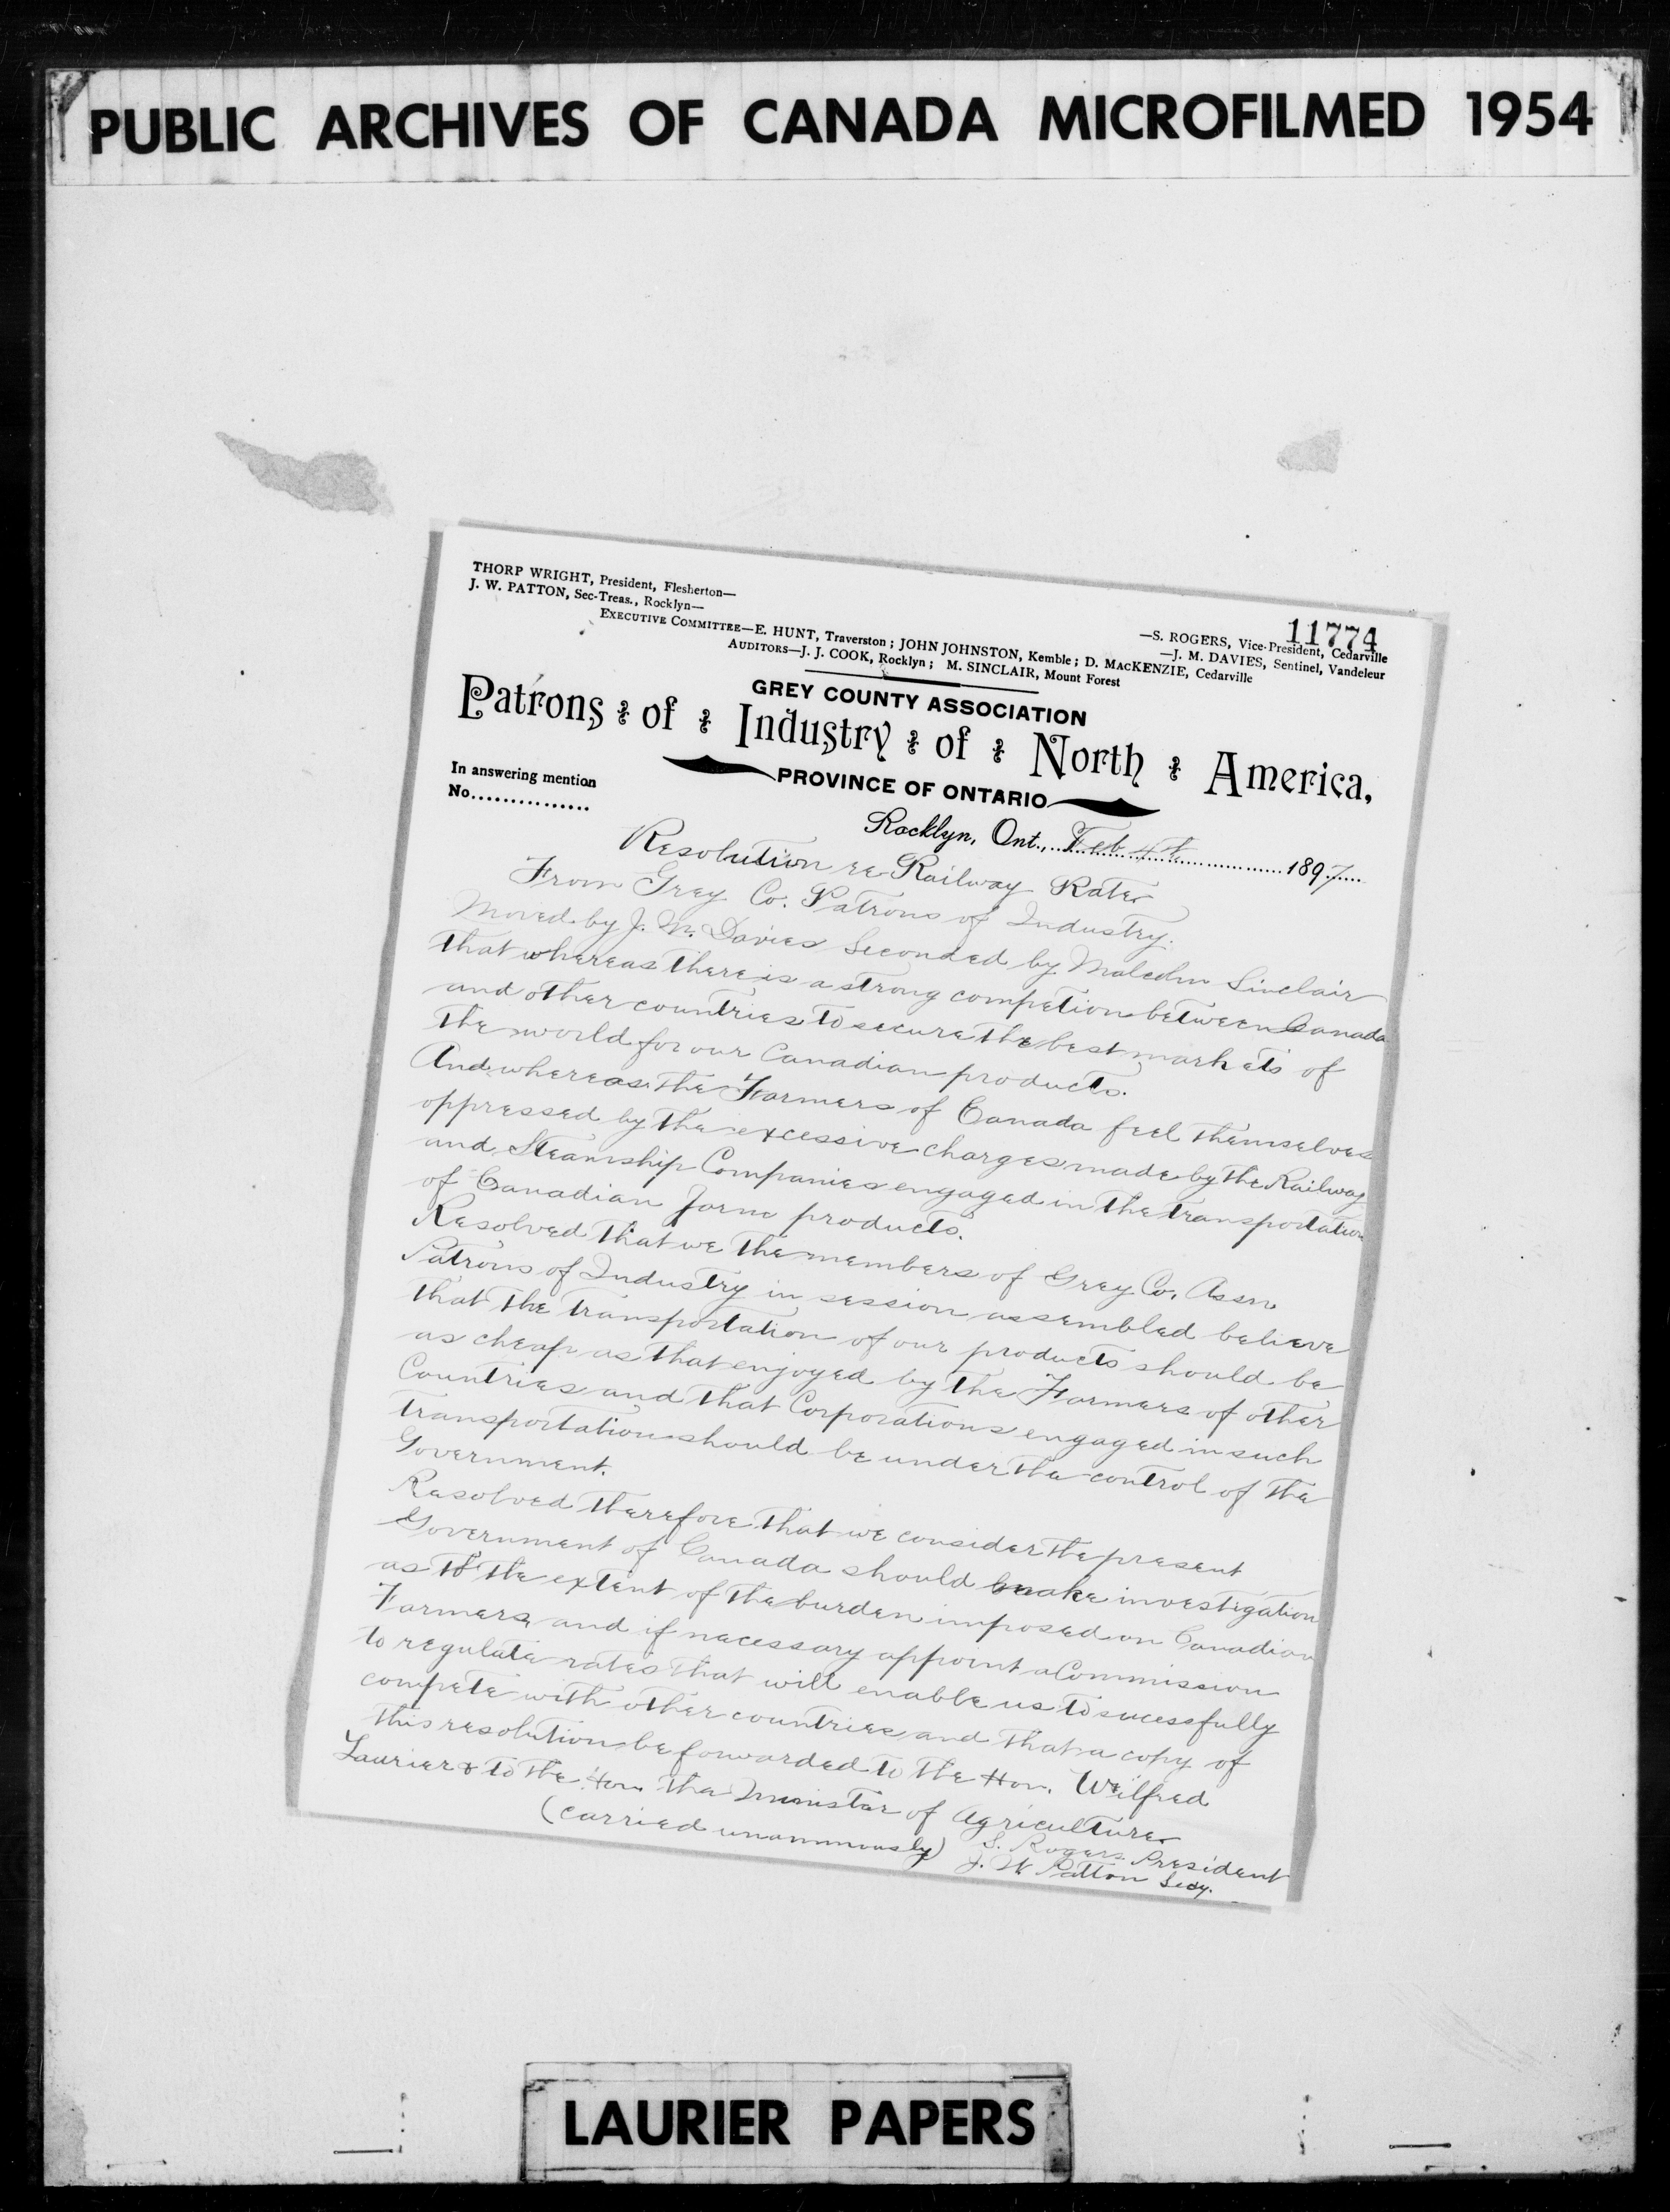 PUBLIC ARCHIVES OF CANADA MICROFILMED 1954
11774
THORP WRIGHT, President, Flesherton—
—S. ROGERS, Vice-President, Cedarville
J. W. PATTON, Sec-Treas., Rocklyn—
—J. M. DAVIES, Sentinel, Vandeleur
EXECUTIVE COMMITTEE—E. HUNT, Traverston; JOHN JOHNSTON, Kemble; D. MACKENZIE, Cedarville
AUDITORS—J. J. COOK, Rocklyn; M. SINCLAIR, Mount Forest
GREY COUNTY ASSOCIATION
Patrons of Industry of North America,
PROVINCE OF ONTARIO
In answering mention
No...............
Rocklyn, Ont., Feb 4th 1897
Resolution re Railway Rates
From Grey Co. Patrons of Industry.
Moved by J. M. Davies Seconded by Malcolm Sinclair
That whereas there is a strong competion between Canada
and other countries to secure the best markets of
the world for our Canadian products.
And whereas the Farmers of Canada feel themselves
oppressed by the excessive charges made by the Railway
and Steamship Companies engaged in the transportation
of Canadian farm products.
Resolved that we the members of Grey Co. Assn.
Patrons of Industry in session assembled believe
that the transportation of our products should be
as cheap as that enjoyed by the Farmers of other
Countries and that Corporations engaged in such
transportation should be under the control of the
Government.
Resolved therefore that we consider the present
Government of Canada should make investigation
as to the extent of the burden imposed on Canadian
Farmers, and if necessary appoint a Commission
to regulate rates that will enable us to sucessfully
compete with other countries and that a copy of
this resolution be forwarded to the Hon. Wilfred
Laurier & to the Hon. the Minister of Agriculture
(carried unanimously) S. Rogers President
J. W Patton Secy.
LAURIER PAPERS